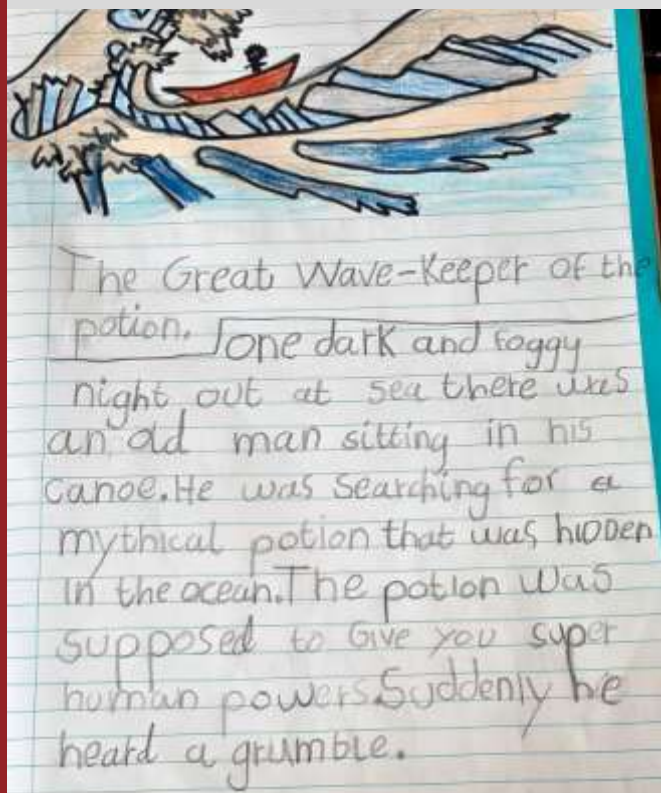 The Great Wave-Keeper of the
potion. one dark and foggy
night out at sea there was
an old man sitting in his
canoe. He was searching for a
mythical potion that was hiDDen
in the ocean. The potion was
supposed to Give you super
human powers. Suddenly he
heard a grumble.